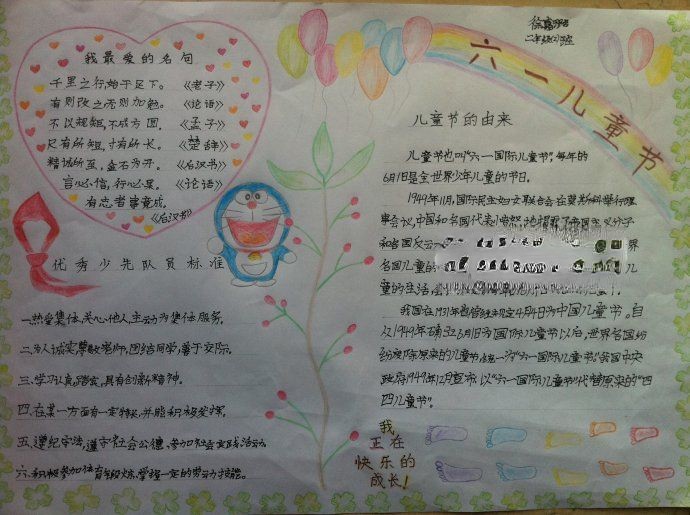 我最爱的名句
千里之行,始于足下。《老子》
有则改之无则加勉。《论语》
不以规矩,不成方圆。《孟子》
尺有所短,寸有所长。《楚辞》
精诚所至,金石为开。《后汉书》
言必信,行必果。《论语》
有志者事竟成。
《后汉书》
优秀少先队员标准
一、热爱集体,关心他人,主动为集体服务。
二、为人诚实,尊敬老师,团结同学,善于交际。
三、学习认真,踏实,具有创新精神。
四、在某一方面有一定特长,并能积极发挥。
五、遵纪守法,遵守社会公德,参加社会实践活动
六、积极参加体育锻炼,掌握一定的劳动技能。
二年级(2)班
六一儿童节
儿童节的由来
儿童节也叫“六一国际儿童节”,每年的
6月1日是全世界少年儿童的节日。
1949年11月,国际民主妇女联合会在莫斯科举行理
事会议,中国和各国代表
和各国反
各国儿童的
童的生活
我国在1931年曾 规定4月4日为中国儿童节。自
从1949年 6月1日为国际儿童节以后,世界各国纷
纷废除原来的儿童节 统一为“六一国际儿童节”我国中央
政府1949年12月宣布以“六一国际儿童节”代替原来的“四
四儿童节”。
我
正在
快乐的
成长!